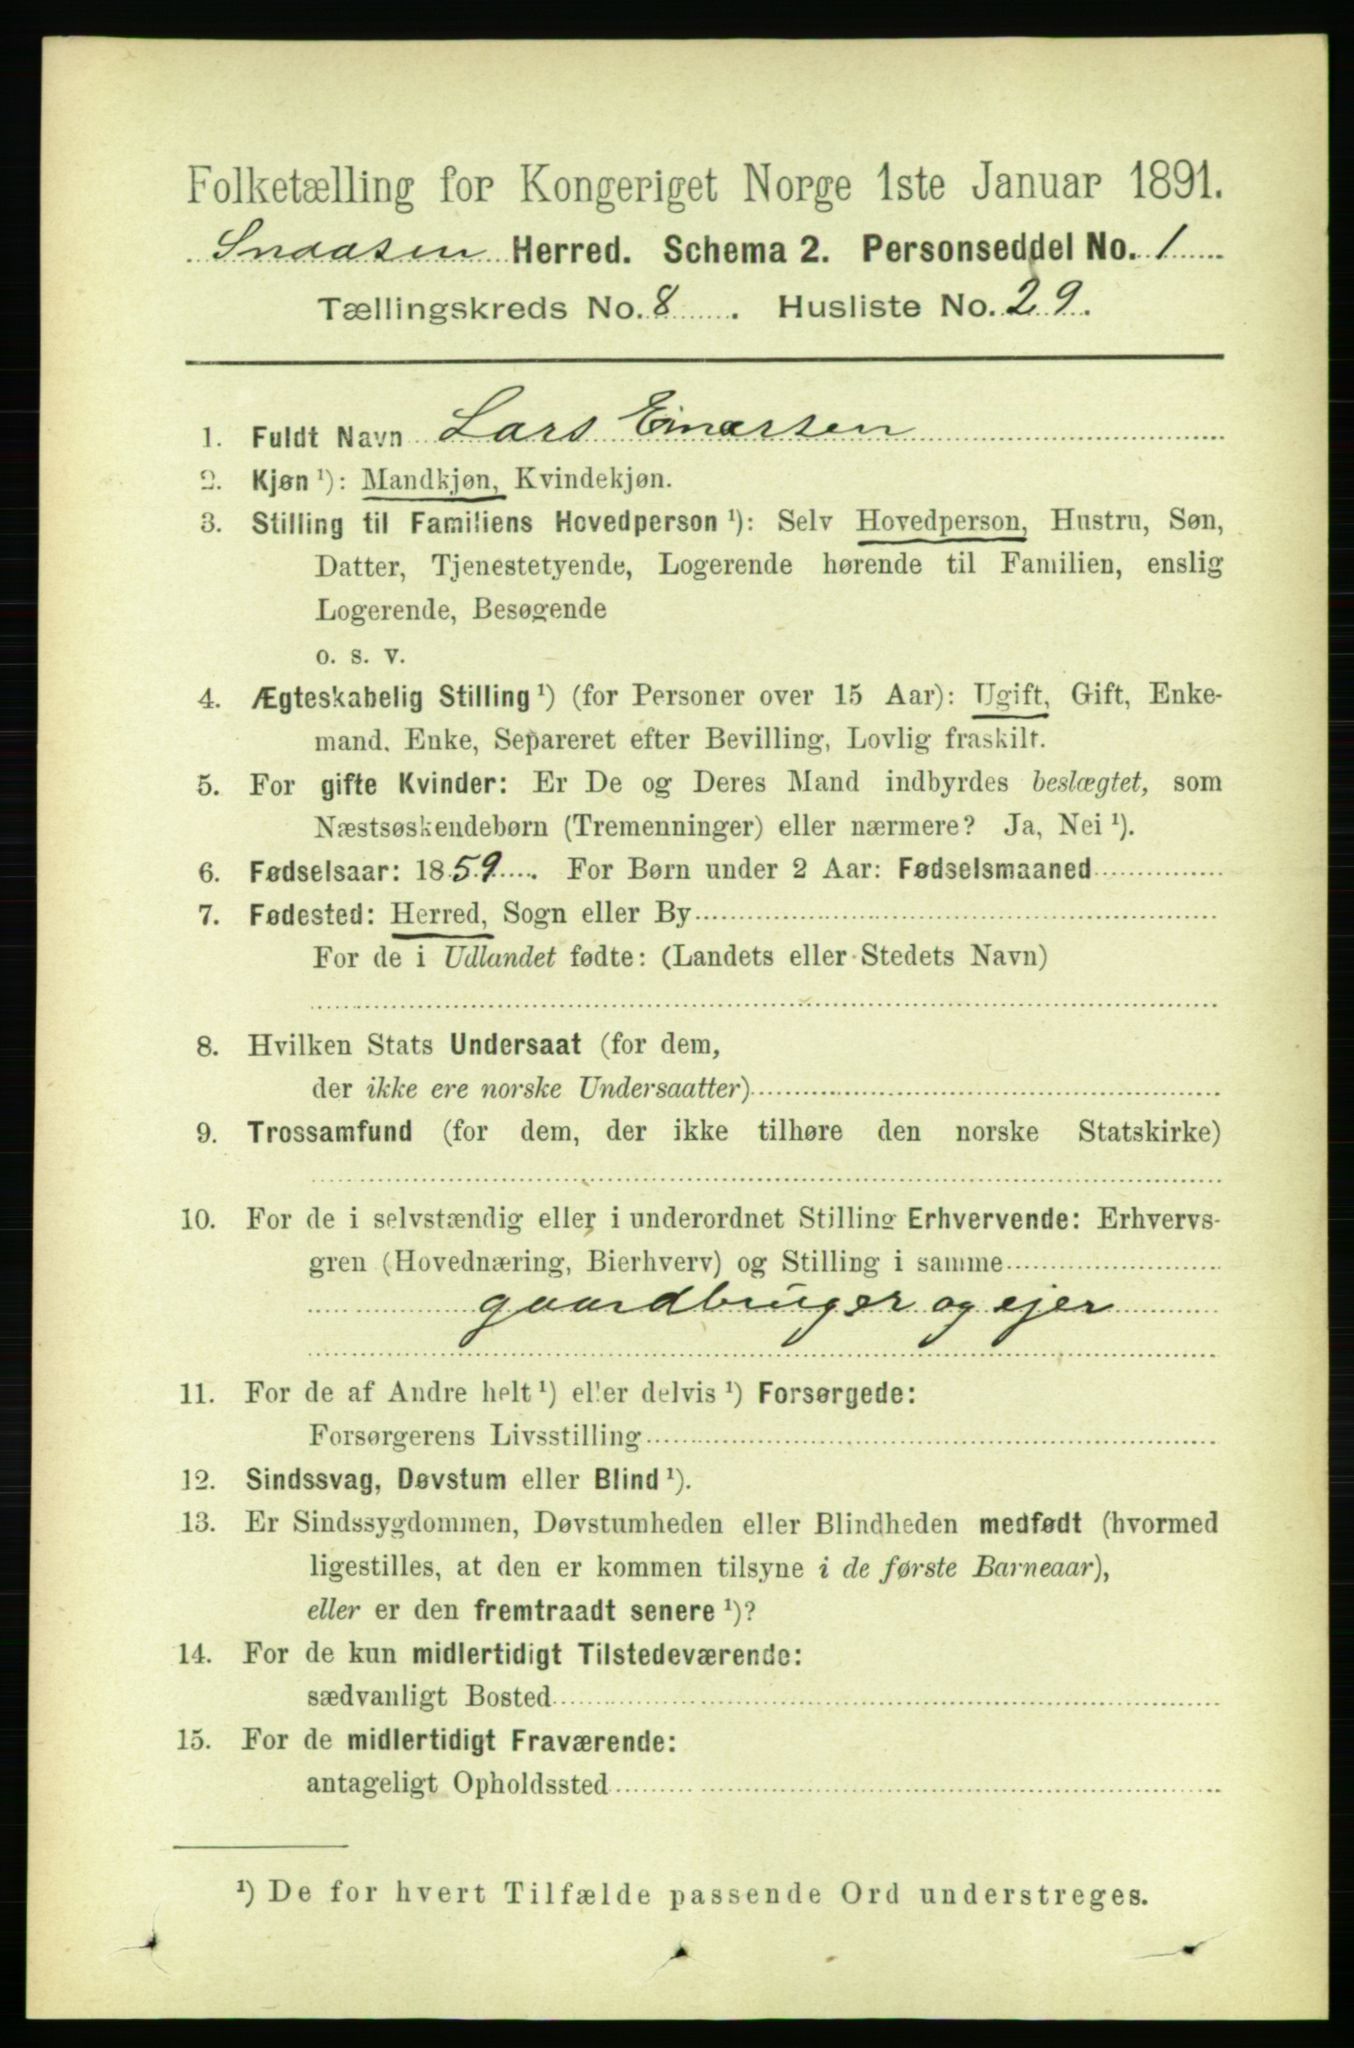 Folketælling for Kongeriget Norge 1ste Januar 1891.
Snaasen Herred. Schema 2. Personseddel No. 1
Tællingskreds No. 8. Husliste No. 29.
1. Fuldt Navn Lars Einarsen
2. Kjøn ¹): Mandkjøn, Kvindekjøn.
3. Stilling til Familiens Hovedperson ¹): Selv Hovedperson, Hustru, Søn,
Datter, Tjenestetyende, Logerende hørende til Familien, enslig
Logerende, Besøgende
o. s. v.
4. Ægteskabelig Stilling ¹) (for Personer over 15 Aar): Ugift, Gift, Enke-
mand, Enke, Separeret efter Bevilling, Lovlig fraskilt.
5. For gifte Kvinder: Er De og Deres Mand indbyrdes beslægtet, som
Næstsøskendebørn (Tremenninger) eller nærmere? Ja, Nei ¹).
6. Fødselsaar: 1859. For Børn under 2 Aar: Fødselsmaaned
7. Fødested: Herred, Sogn eller By
For de i Udlandet fødte: (Landets eller Stedets Navn)
8. Hvilken Stats Undersaat (for dem,
der ikke ere norske Undersaatter)
9. Trossamfund (for dem, der ikke tilhøre den norske Statskirke)
10. For de i selvstændig eller i underordnet Stilling Erhvervende: Erhvervs-
gren (Hovednæring, Bierhverv) og Stilling i samme
gaardbruger og ejer
11. For de af Andre helt ¹) eller delvis ¹) Forsørgede:
Forsørgerens Livsstilling
12. Sindssvag, Døvstum eller Blind ¹).
13. Er Sindssygdommen, Døvstumheden eller Blindheden medfødt (hvormed
ligestilles, at den er kommen tilsyne i de første Barneaar),
eller er den fremtraadt senere ¹)?
14. For de kun midlertidigt Tilstedeværende:
sædvanligt Bosted
15. For de midlertidigt Fraværende:
antageligt Opholdssted
¹) De for hvert Tilfælde passende Ord understreges.